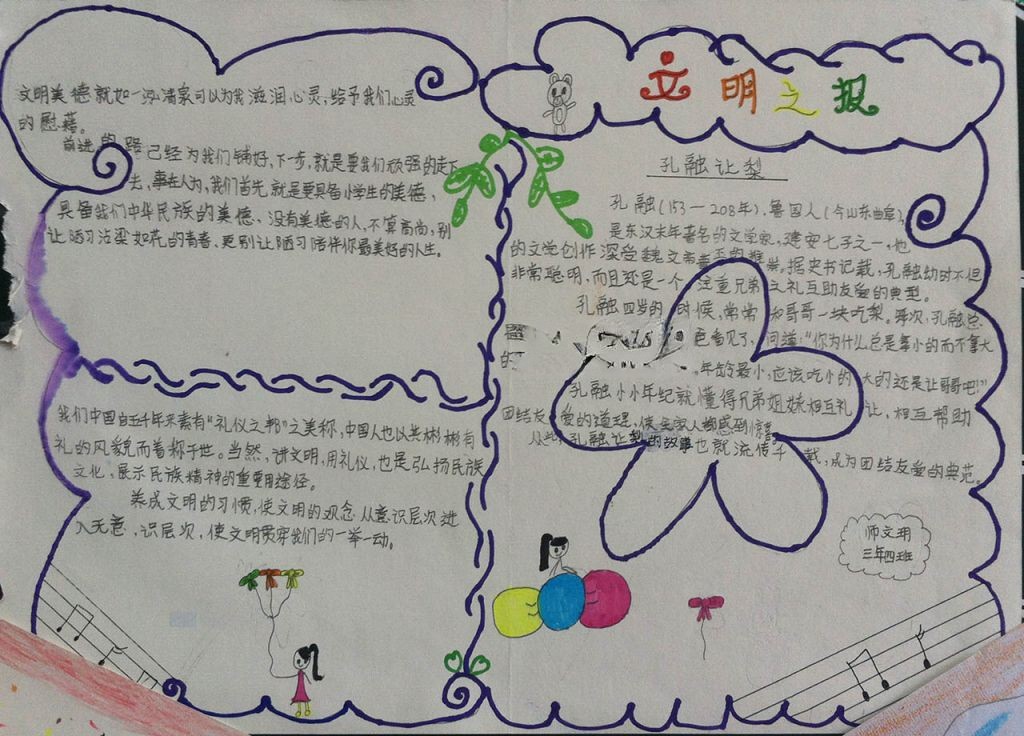 文明美德就如一泓清泉可以为我滋润心灵,给予我们心灵
的慰藉。
前进的路已经为我们铺好,下一步,就是要我们顽强的走下
去,事在人为,我们首先就是要具备小学生的美德,
具备我们中华民族的美德、没有美德的人,不算高尚,别
让陋习沾染如花的青春、更别让陋习陪伴你最美好的人生。
我们中国自五千年来素有“礼仪之邦”之美称,中国人也以其彬彬有
礼的风貌而着称于世。当然,讲文明,用礼仪,也是弘扬民族
文化,展示民族精神的重要途径。
养成文明的习惯,使文明的观念从意识层次进
入无意,识层次,使文明贯穿我们的一举一动。
文明之报
孔融让梨
孔融(153—208年),鲁国人(今山东曲阜),
是东汉末年著名的文学家,建安七子之一,他
的文学创作深受魏文帝曹丕的推崇。据史书记载,孔融幼时不但
非常聪明,而且还是一个注重兄弟之礼互助友爱的典型。
孔融四岁的时候,常常和哥哥一块吃梨。每次,孔融总
爸看见了,问道:“你为什么总是拿小的而不拿大
的 年龄最小,应该吃小的大的还是让哥哥吧!”
孔融小小年纪就懂得兄弟姐妹相互礼让,相互帮助
团结友爱的道理,使全家人都感到惊喜
从此,孔融让梨的故事也就流传千载,成为团结友爱的典范。
师文玥
三年四班